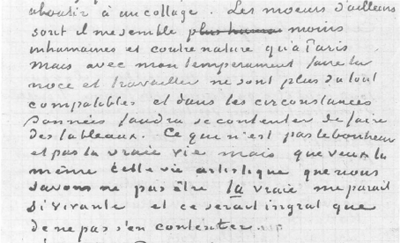 aboutir à un collage. Les moeurs d'ailleurs
sont il me semble plus humai moins
inhumaines et contre nature qu'à Paris
mais avec mon temperament faire la
noce et travailler ne sont plus du tout
compatibles et dans les circonstances
données faudra se contenter de faire
des tableaux. Ce qui n'est pas le bonheur
et pas la vraie vie mais que veux tu
même cette vie artistique que nous
savons ne pas être la vraie me parait
si vivante et ce serait ingrat que
de ne pas s'en contenter.